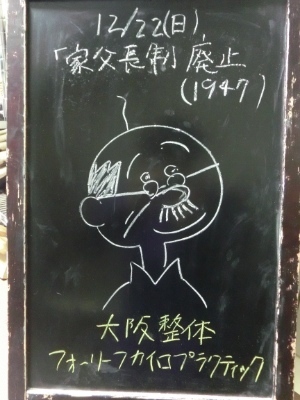 12/22(日)
「家父長制」廃止
(1947)
大阪整体
フォーリーフカイロプラクティック